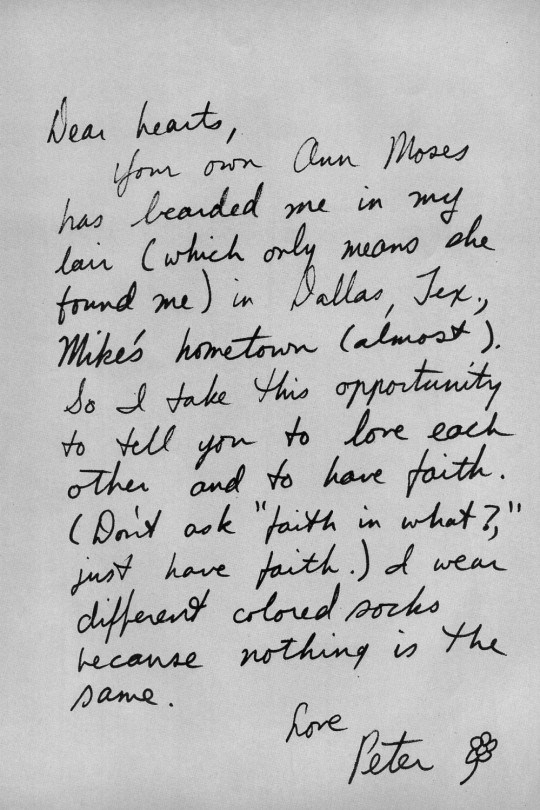 Dear hearts,
Your own Ann Moses
has bearded me in my
lair (which only means she
found me) in Dallas, Tex.,
Mike's hometown (almost).
So I take this opportunity
to tell you to love each
other and to have faith.
(Don't ask "faith in what?,"
just have faith.) I wear
different colored socks
because nothing is the
same.
Love
Peter